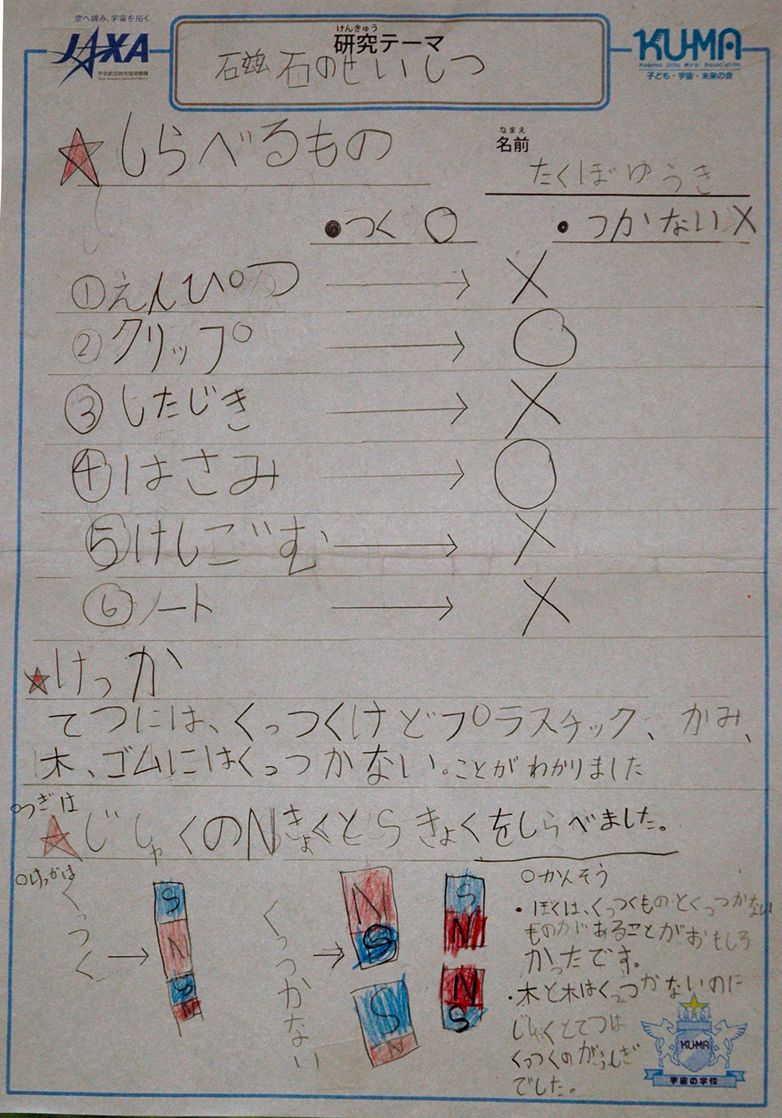 空へ挑み、宇宙を拓く
JAXA
けんきゅう
研究テーマ
磁石のせいしつ
KU-MA
子ども・宇宙・未来の会
★しらべるもの
なまえ
名前
たくぼゆうき
●つく ○
●つかない X
①えんぴつ → X
②クリップ → ○
③したじき → X
④はさみ → ○
⑤けしごむ → X
⑥ノート → X
★けっか
てつには、くっつくけどプラスチック、かみ、
木、ゴムにはくっつかない。ことがわかりました
○つぎは
★じしゃくのNきょくとSきょくをしらべました。
○けっかは
くっつく →
S
N
S
N
くっつかない →
N
S
S
N
S
N
N
S
○かんそう
・ぼくは、くっつくものとくっつかない
ものがあることがおもしろ
かったです。
・木と木はくっつかないのに
じしゃくとてつは
くっつくのがふしぎ
でした。
KU-MA
宇宙の学校